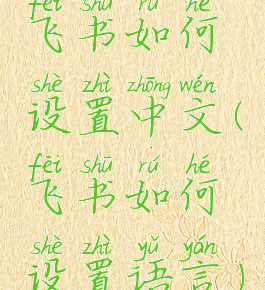 fēi shū rú hé
飞书如何
shè zhì zhōng wén
设置中文(
fēi shū rú hé
飞书如何
shè zhì yǔ yán
设置语言)